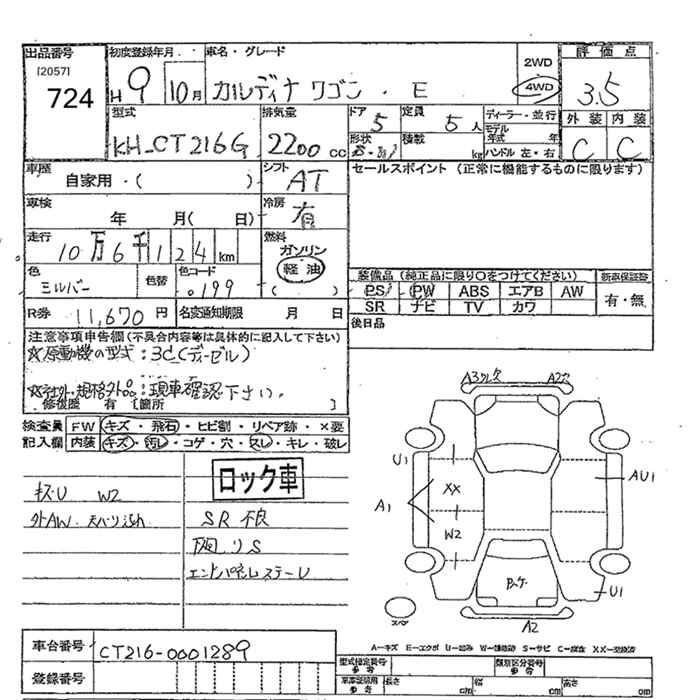 出品番号 初度登録年月. 車名・グレード 2WD 評価点
[2057]
724 H9 10月 カルディナ ワゴン . E 4WD 3.5
型式 排気量 ドア 定員 ディーラー・並行 外装 内装
KH-CT216G 2200cc 5 5人 モデル年式 年
形状 積数 kg ハンドル 左・右 C C
車歴 シフト セールスポイント (正常に機能するものに限ります)
自家用・( ) AT
車検 冷房
年 月( 日) 有
走行 燃料
10万6千124km ガソリン
軽油
色 色替 色コード ( ) 装備品 (純正品に限り○をつけてください) 新車保証書
シルバー 199 PS PW ABS エアB AW 有・無
R券 11,670円 名変通知期限 月 日 SR ナビ TV カワ
後日品
注意事項申告欄(不具合内容等は具体的に記入して下さい)
☆原動機の型式:3C(ディーゼル)
☆社外・規格外品:現車確認下さい。
修復歴 有 [箇所 ]
検査員 FW キズ・飛石・ヒビ割・リペア跡・×要
記入欄 内装 キズ・汚レ・コゲ・穴・スレ・キレ・破レ
ロック車
キズU W2
外AW 天バリ汚れ SR不良
下回りS
エンドパネルステーU
A3 A2
U1 AU1
XX
A1
W2
U1
A2
A－キズ E－エクボ U－凹み W－補修跡 S－サビ C－腐食 XX－交換済
車台番号 CT216-0001289
型式指定番号 参考 類別区分番号 参考
登録番号 車庫証明用 参考 長さ cm 幅 cm 高さ cm